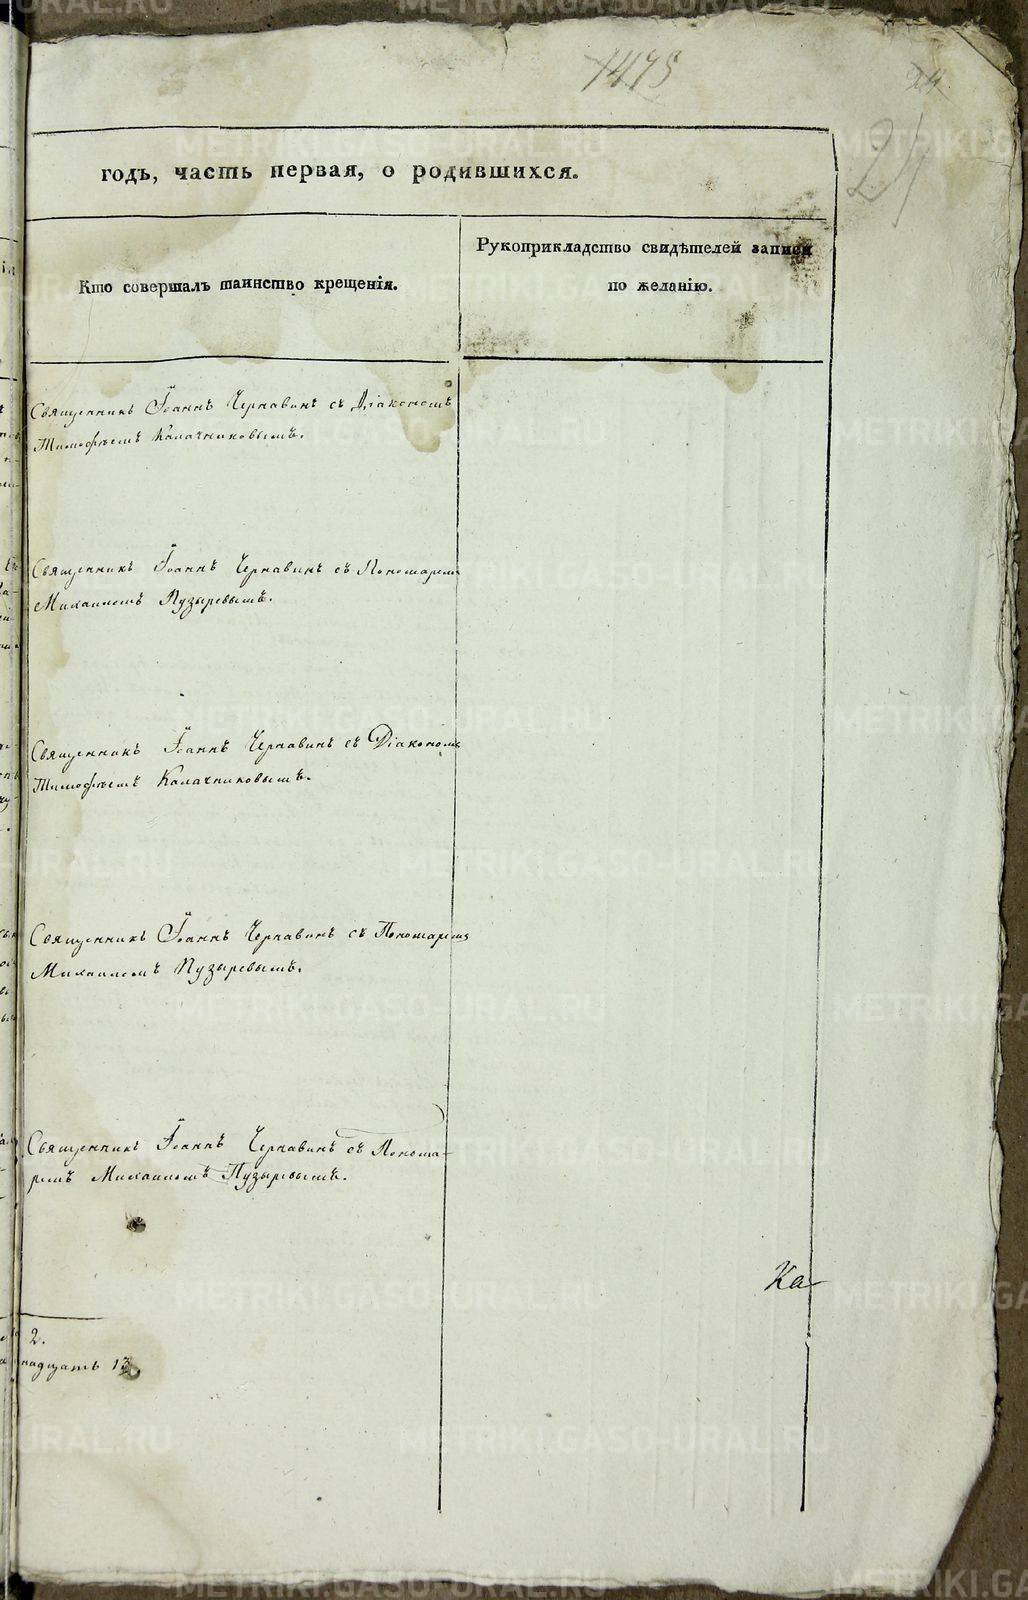 1475
24
21
годъ, часть первая, о родившихся.
Кто совершалъ таинство крещенія.
Рукоприкладство свидѣтелей записи
по желанію.
Священникъ Іоаннъ Чернавинъ съ Діакономъ
Тимофѣемъ Калачниковымъ.
Священникъ Іоаннъ Чернавинъ съ Пономаремъ
Михаиломъ Пузыревымъ.
Священникъ Іоаннъ Чернавинъ съ Діакономъ
Тимофѣемъ Калачниковымъ.
Священникъ Іоаннъ Чернавинъ съ Пономаремъ
Михаиломъ Пузыревымъ.
Священникъ Іоаннъ Чернавинъ съ Понома-
ремъ Михаиломъ Пузыревымъ.
Ка
2.
надцать 13
METRIKI.GASO-URAL.RU